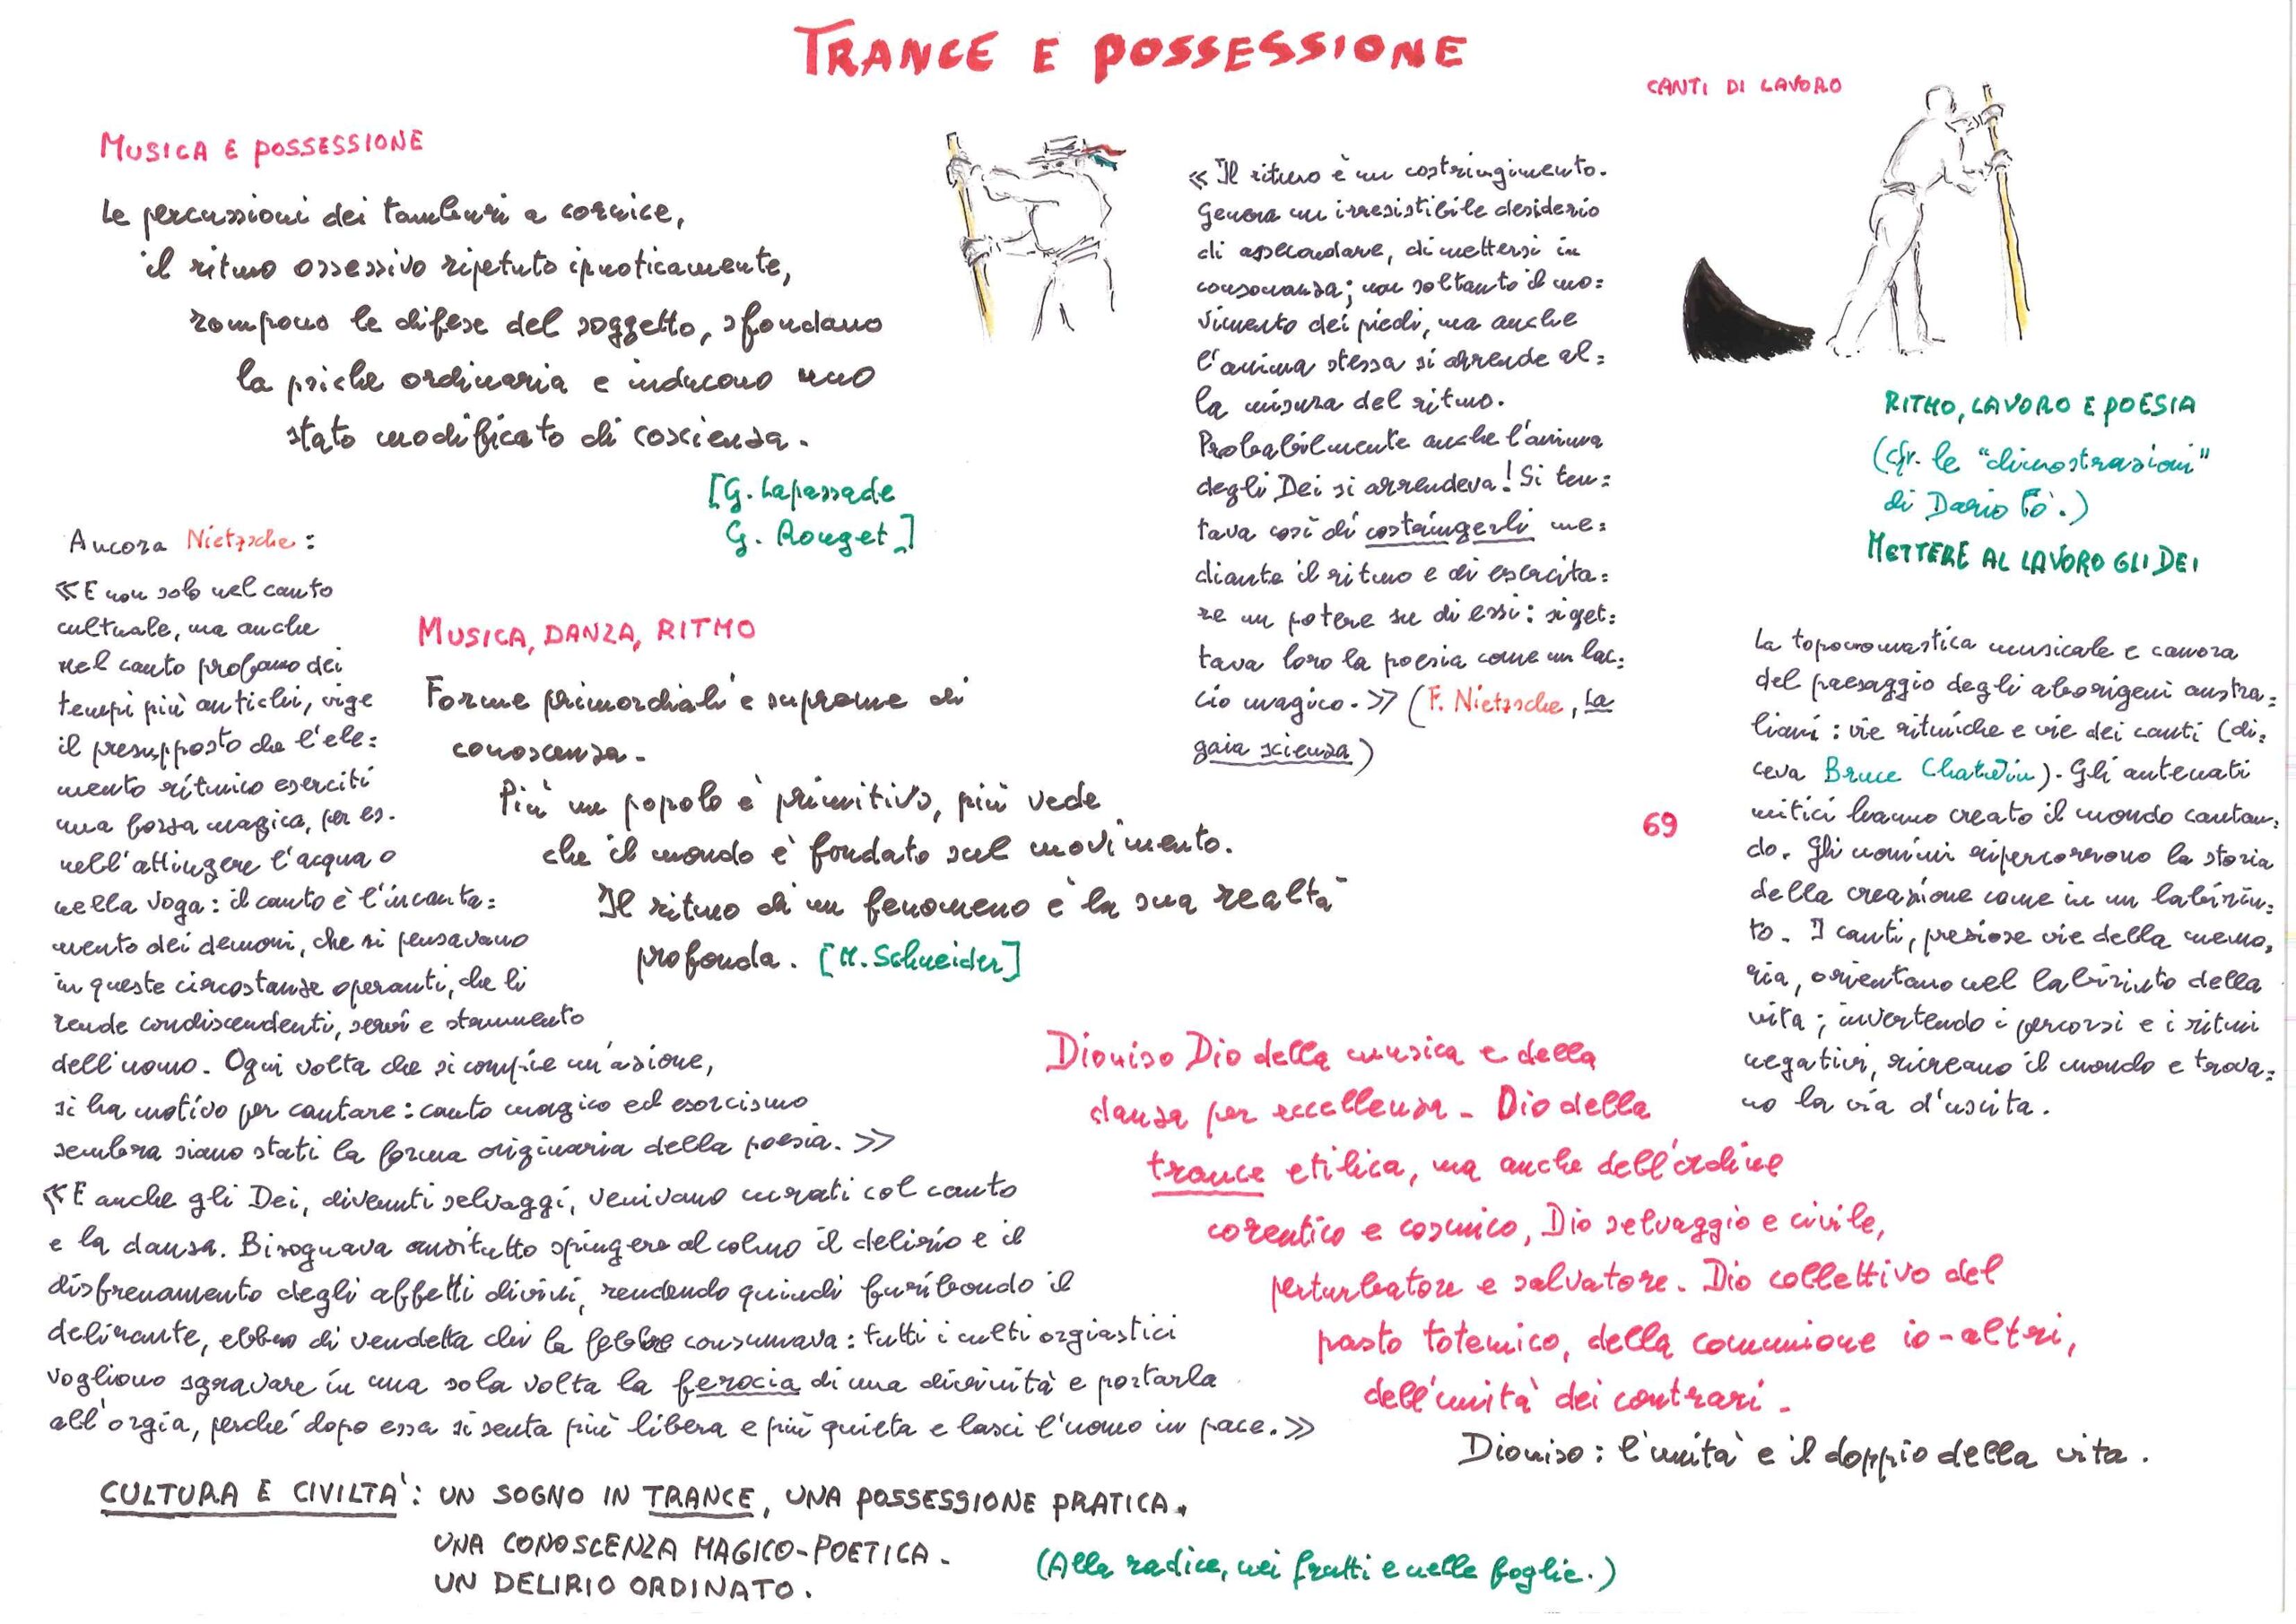 TRANCE E POSSESSIONE
MUSICA E POSSESSIONE
Le percussioni dei tamburi a cornice,
il ritmo ossessivo ripetuto ipnoticamente,
rompono le difese del soggetto, sfondano
la psiche ordinaria e inducono uno
stato modificato di coscienza.
[G. Lapassade
G. Rouget]
Ancora Nietzsche:
«E non solo nel canto
cultuale, ma anche
nel canto profano dei
tempi più antichi, vige
il presupposto che l'ele=
mento ritmico eserciti
una forza magica, per es.
nell'attingere l'acqua o
nella voga: il canto è l'incanta=
mento dei demoni, che si pensavano
in queste circostanze operanti, che li
rende condiscendenti, servi e strumento
dell'uomo. Ogni volta che si compie un'azione,
si ha motivo per cantare: canto magico ed esorcismo
sembra siano stati la forma originaria della poesia.»
«E anche gli Dei, divenuti selvaggi, venivano curati col canto
e la danza. Bisognava anzitutto spingere al colmo il delirio e il
disfrenamento degli affetti divini, rendendo quindi furibondo il
delirante, ebbro di vendetta chi la febbre consumava: tutti i culti orgiastici
vogliono sgravare in una sola volta la ferocia di una divinità e portarla
all'orgia, perché dopo essa si senta più libera e più quieta e lasci l'uomo in pace.»
MUSICA, DANZA, RITMO
Forme primordiali e supreme di
conoscenza.
Più un popolo è primitivo, più vede
che il mondo è fondato sul movimento.
Il ritmo di un fenomeno è la sua realtà
profonda. [M. Schneider]
«Il ritmo è un costringimento.
Genera un irresistibile desiderio
di assecondare, di mettersi in
consonanza; non soltanto il mo=
vimento dei piedi, ma anche
l'anima stessa si arrende al=
la misura del ritmo.
Probabilmente anche l'anima
degli Dei si arrendeva! Si ten=
tava così di costringerli me=
diante il ritmo e di esercita=
re un potere su di essi: si get=
tava loro la poesia come un lac=
cio magico.» (F. Nietzsche, La
gaia scienza)
CANTI DI LAVORO
RITMO, LAVORO E POESIA
(cfr. le "dimostrazioni"
di Dario Fò.)
METTERE AL LAVORO GLI DEI
69
La toponomastica musicale e canora
del paesaggio degli aborigeni austra=
liani: vie ritmiche e vie dei canti (di=
ceva Bruce Chatwin). Gli antenati
mitici hanno creato il mondo cantan=
do. Gli uomini ripercorrono la storia
della creazione come in un labirin=
to. I canti, preziose vie della memo=
ria, orientano nel labirinto della
vita; invertendo i percorsi e i ritmi
negativi, ricreano il mondo e trova=
no la via d'uscita.
Dioniso Dio della musica e della
danza per eccellenza - Dio della
trance etilica, ma anche dell'ordine
coreutico e cosmico, Dio selvaggio e civile,
perturbatore e salvatore. Dio collettivo del
pasto totemico, della comunione io-altri,
dell'unità dei contrari.
Dioniso: l'unità e il doppio della vita.
CULTURA E CIVILTA': UN SOGNO IN TRANCE, UNA POSSESSIONE PRATICA.
UNA CONOSCENZA MAGICO-POETICA.
UN DELIRIO ORDINATO.
(Alla radice, nei frutti e nelle foglie.)